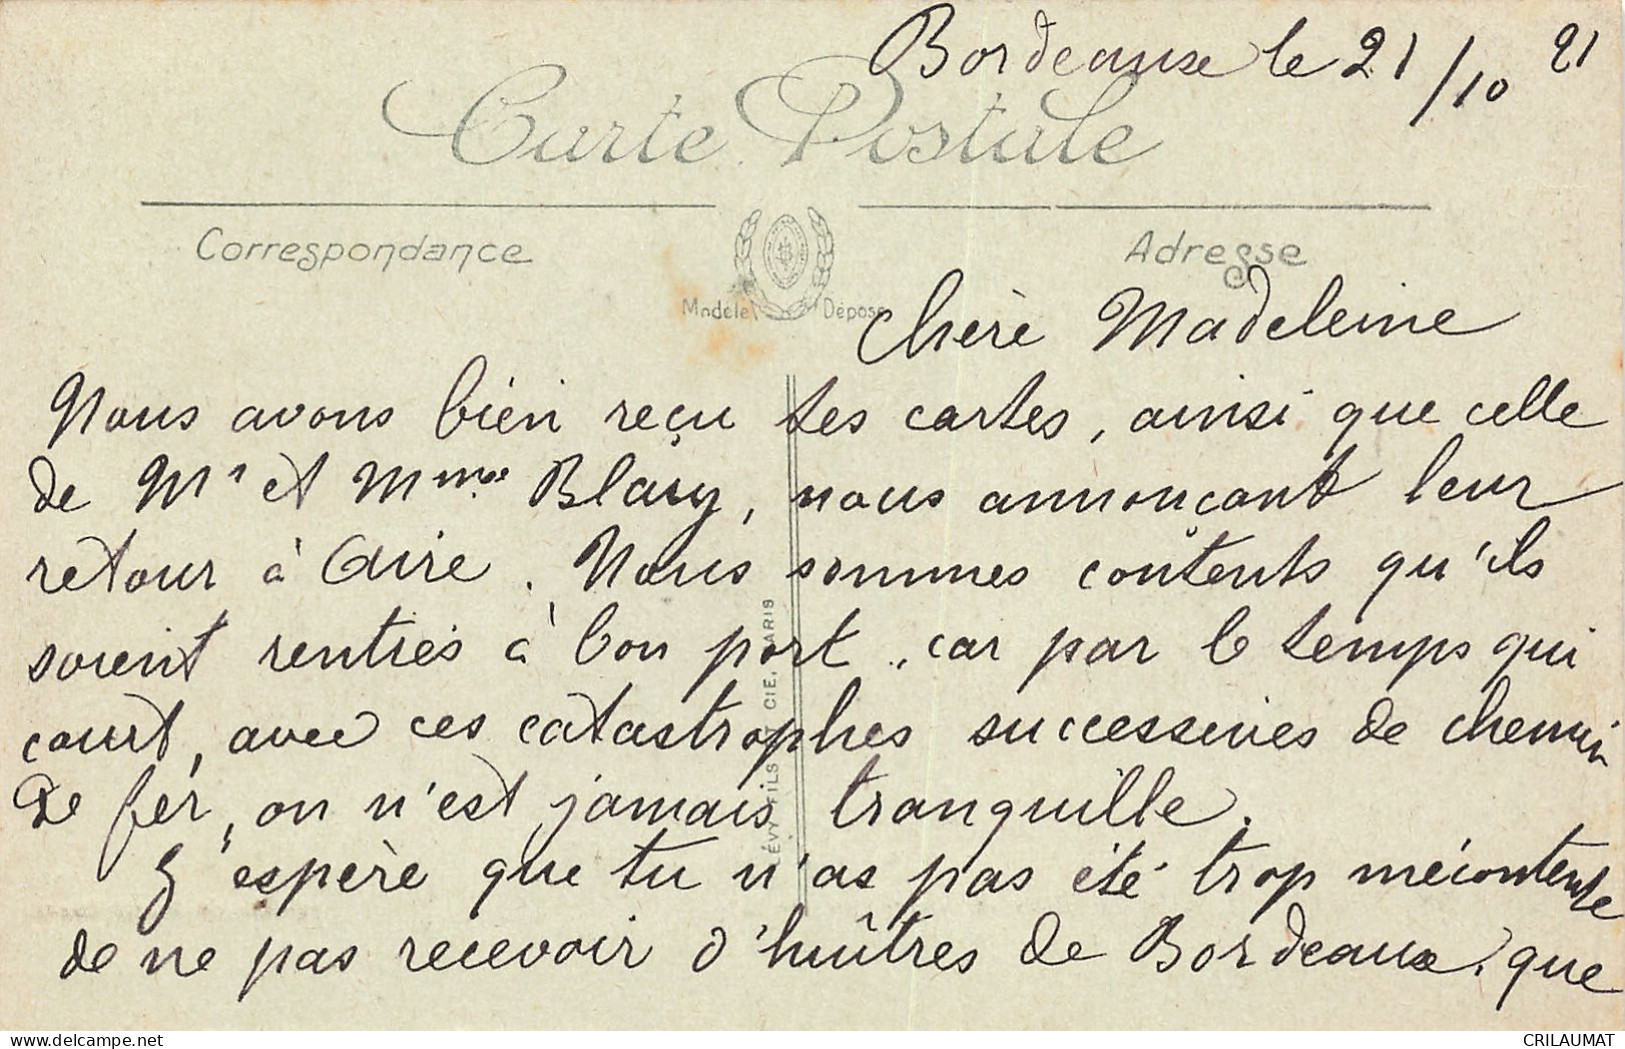 Bordeaux le 21/10 21
Carte Postale
Correspondance
Adresse
Modèle Déposé
Chère Madeleine
Nous avons bien reçu tes cartes, ainsi que celle
de Mr et Mme Blary, nous annonçant leur
retour à Aire. Nous sommes contents qu'ils
soient rentrés à bon port, car par le temps qui
court, avec ces catastrophes successives de chemin
de fer, on n'est jamais tranquille.
J'espère que tu n'as pas été trop mécontente
de ne pas recevoir d'huîtres de Bordeaux, que
LÉVY FILS & CIE, PARIS
delcampe.net
CRILAUMAT